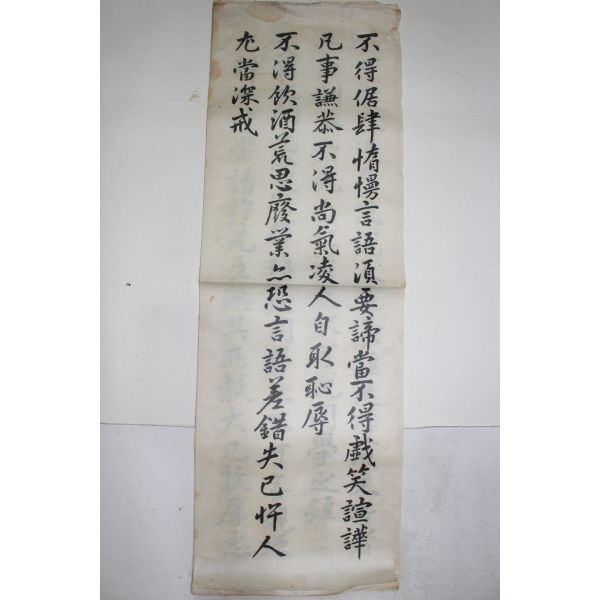 不得倨肆惰慢言語湏要諦當不得戱笑諠譁
凡事謙恭不得尚氣凌人自取恥辱
不得飮酒荒思廢業亦恐言語差錯失己忤人
尤當深戒